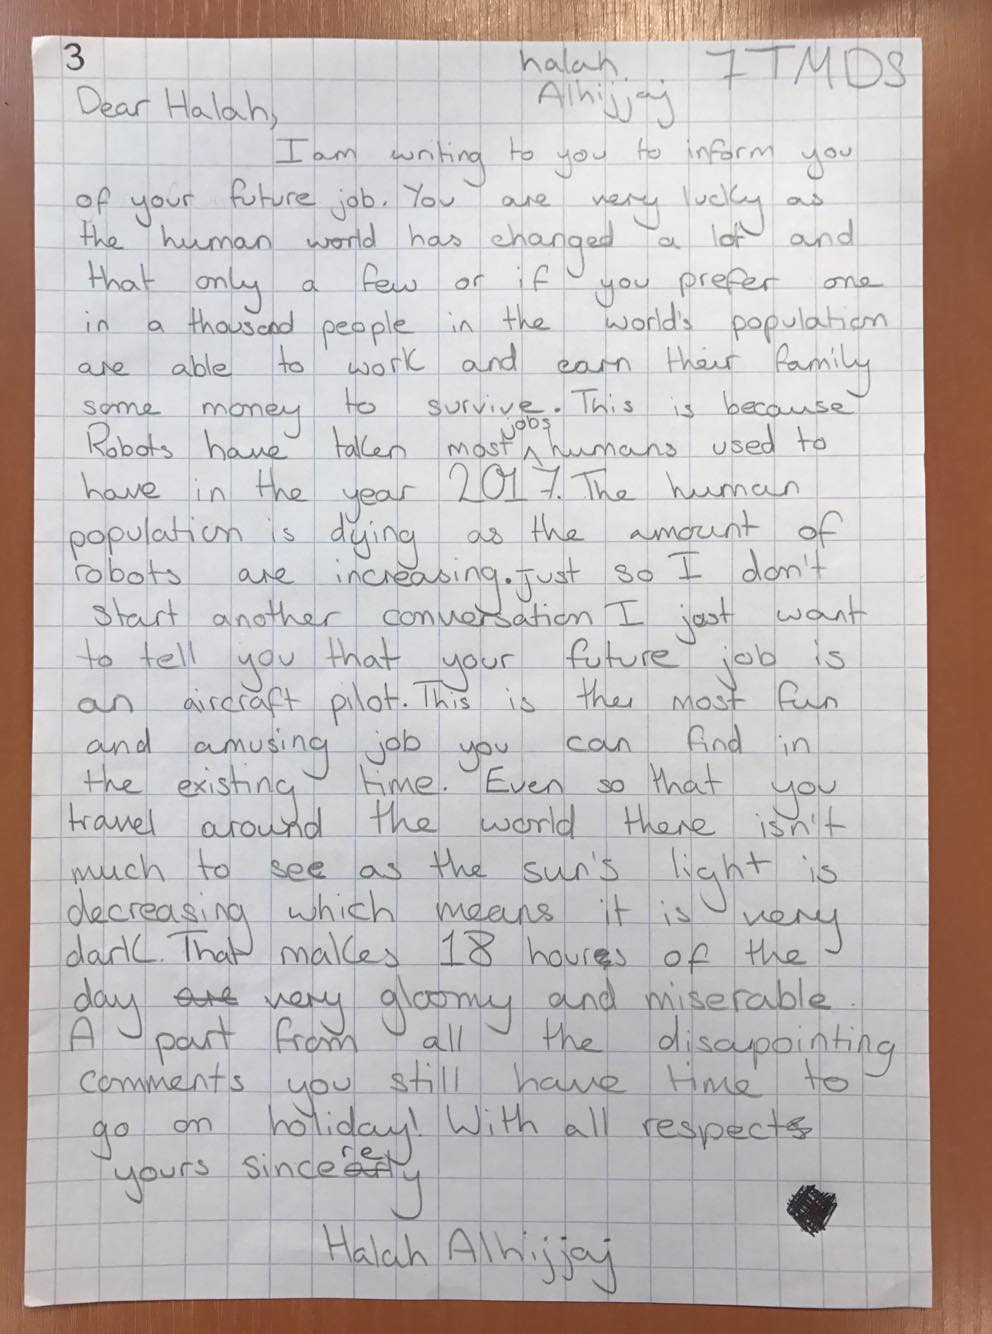 3
halah. 7TMDS
Alhijjaj
Dear Halah,
I am writing to you to inform you
of your future job. You are very lucky as
the human world has changed a lot and
that only a few or if you prefer one
in a thousand people in the world's population
are able to work and earn their family
some money to survive. This is because
Robots have taken most jobs humans used to
have in the year 2017. The human
population is dying as the amount of
robots are increasing. just so I don't
start another conversation I just want
to tell you that your future job is
an aircraft pilot. This is the most fun
and amusing job you can find in
the existing time. Even so that you
travel around the world there isn't
much to see as the sun's light is
decreasing which means it is very
dark. That makes 18 hours of the
day are very gloomy and miserable.
A part from all the disapointing
comments you still have time to
go on holiday! With all respect
yours sincerely
Halah Alhijjaj